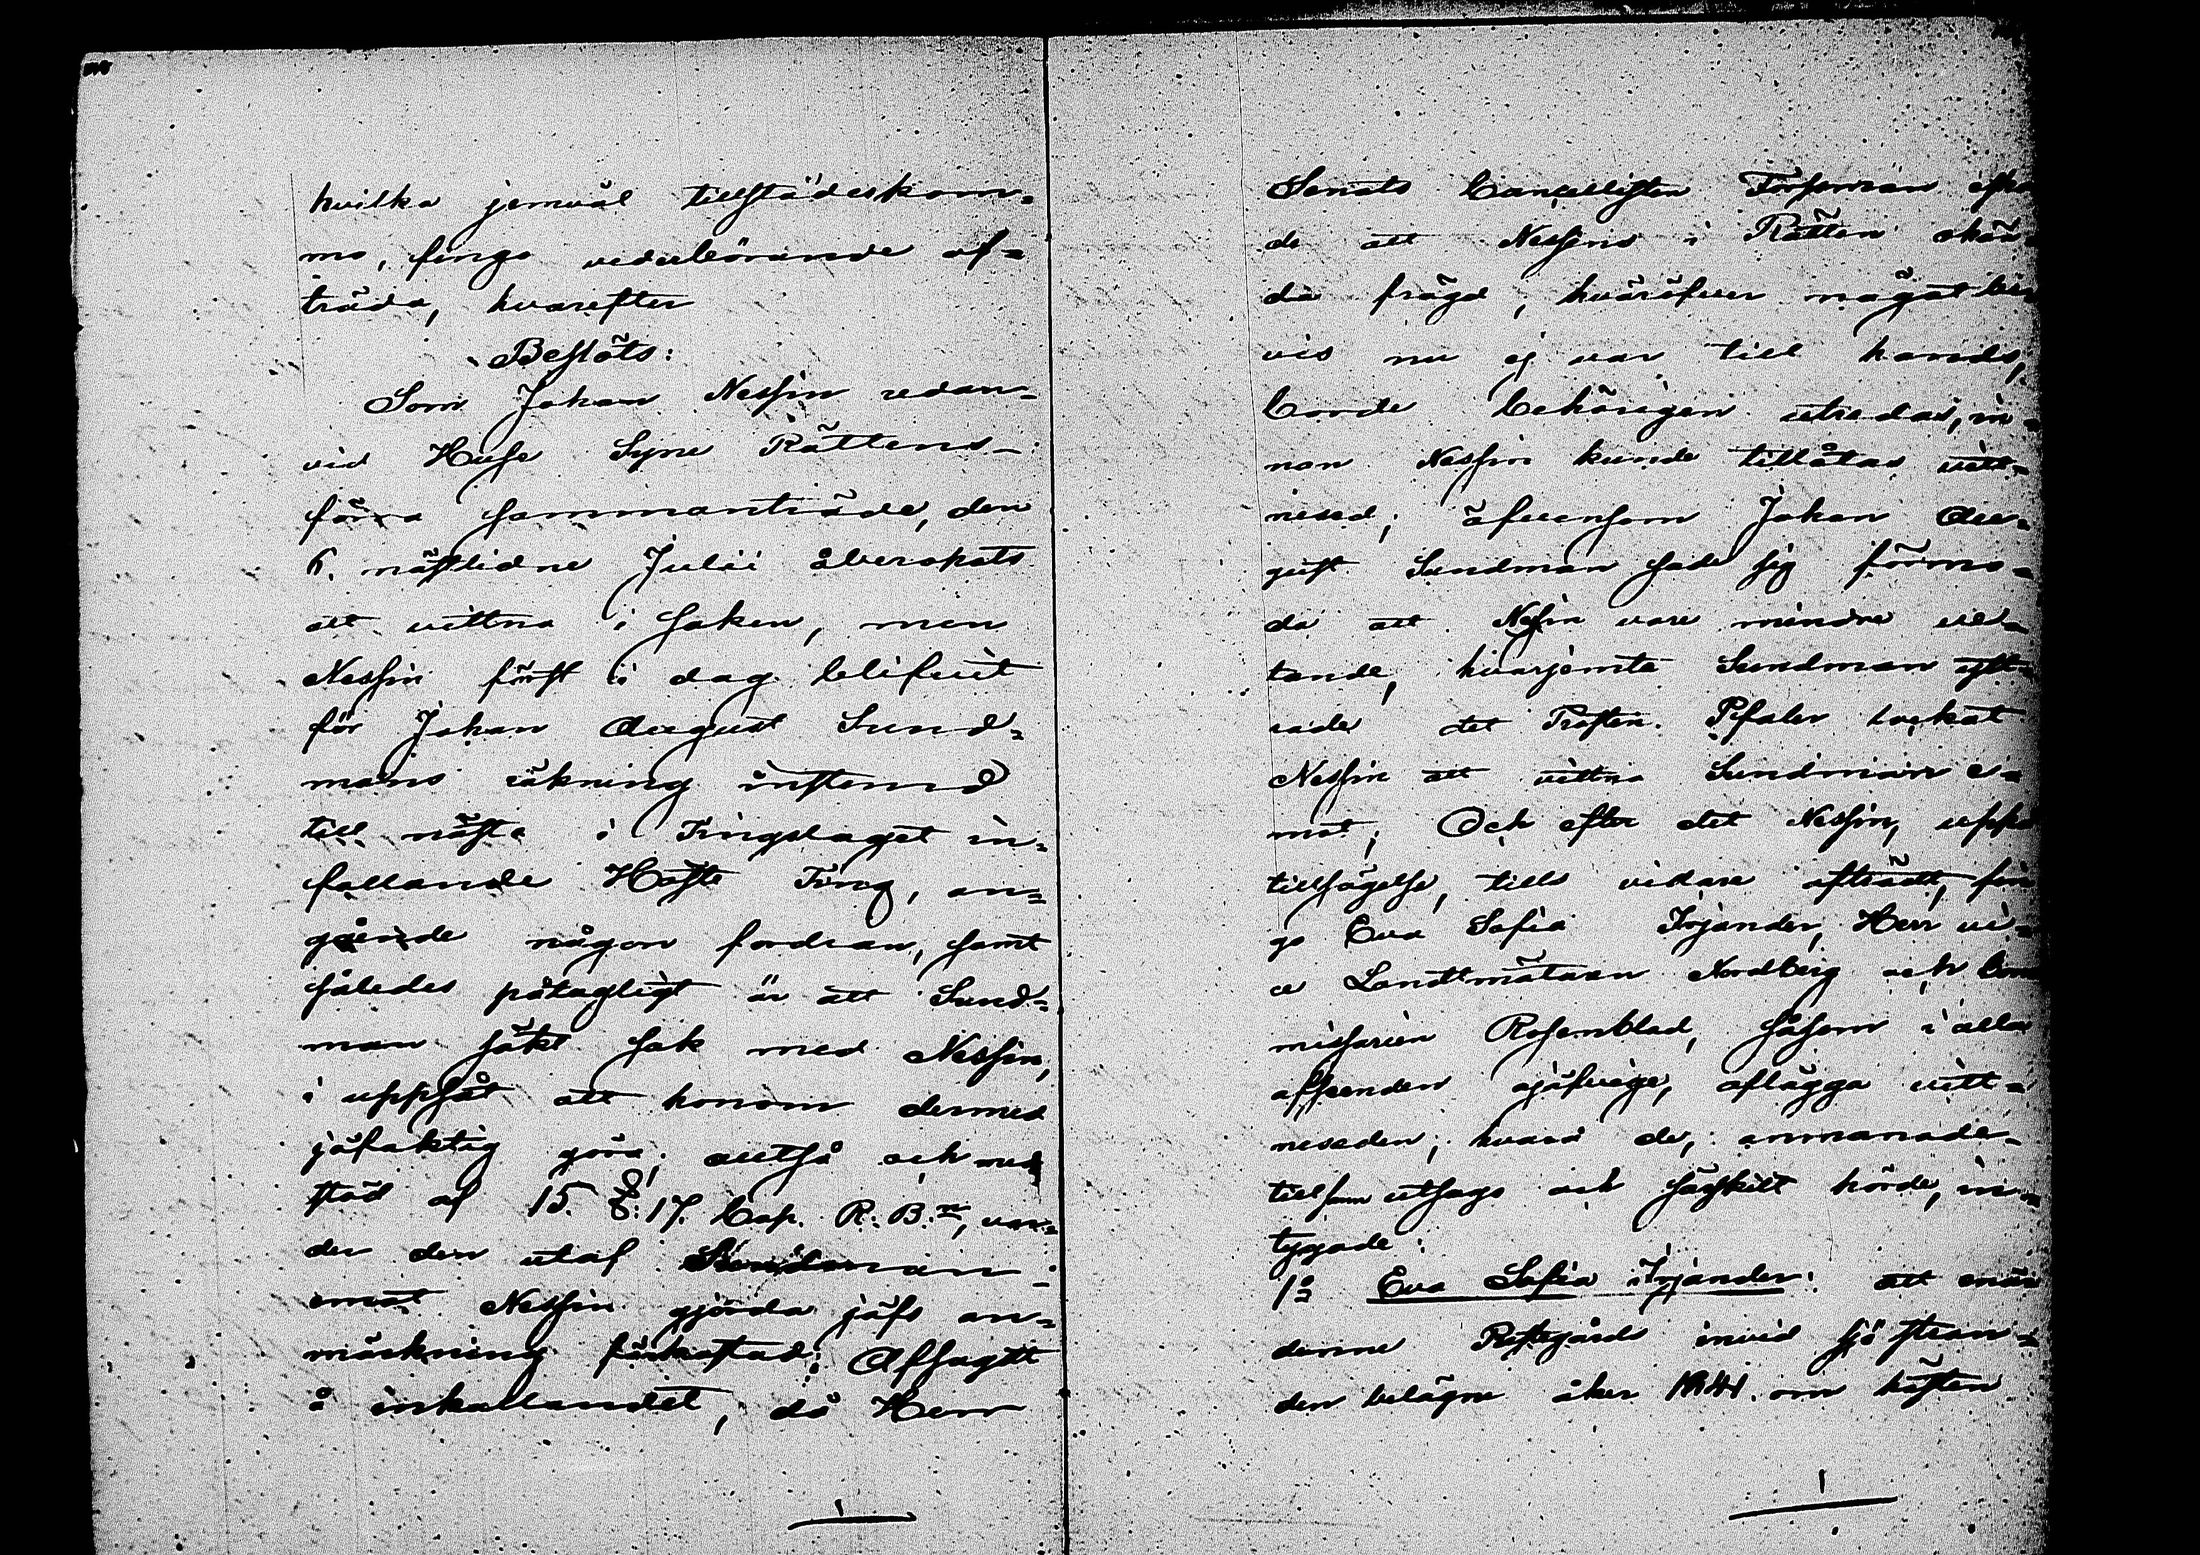 hvilka jemväl tillstädeskom-
mo, fingo vederbörande af-
träda, hvarefter
Beslöts:
Som Johan Nessin redan
vid Husesyne Rättens
förra sammanträde, den
6. nästlidne Julii åberopats
att vittna i saken, men
Nessin först i dag blifvit
för Johan August Sund-
mans räkning instemd
till nästa i Tingslaget in-
fallande Höste Ting, an-
gående någon fordran, samt
således påtagligt är att Sund-
man sökt sak med Nessin,
i uppsåt att honom dermed
jäfaktig göra; alltså och med
stöd af 15. §. 17. Cap. R. B.n, var-
der den utaf Sundman
emot Nessin gjorda jäfs an-
märkning förkastad; Afsagdt
å inkallandet, då Herr
Senats Cancellisten Forseman
de att Nessins i Rätten
da frägd, hvaröfver något be-
vis nu ej var till hands,
borde behörigen utredas, in-
nan Nessin kunde tillåtas vitt-
nesed; äfvensom Johan Au-
gust Sundman sade sig förmo-
da att Nessin vore mindre ve-
tande, hvarjemte Sundman
rade det Prosten Pfaler lockat
Nessin att vittna Sundman e-
mot; Och efter det Nessin, uppå
tillsägelse, tills vidare afträdt, fin-
go Eva Sofia Irjander, Herr vi-
ce Landtmätaren Nordberg och Com
missarien Rosenblad, såsom i alla
afseenden ojäfvige, aflägga vitt-
neseden; hvarå de, anmanade
till sann utsago och särskilt hörde, in-
tygade:
1:o Eva Sofia Irjander: att
denne Prostgårds invid sjö stran-
den belägne åker 1841. om hösten